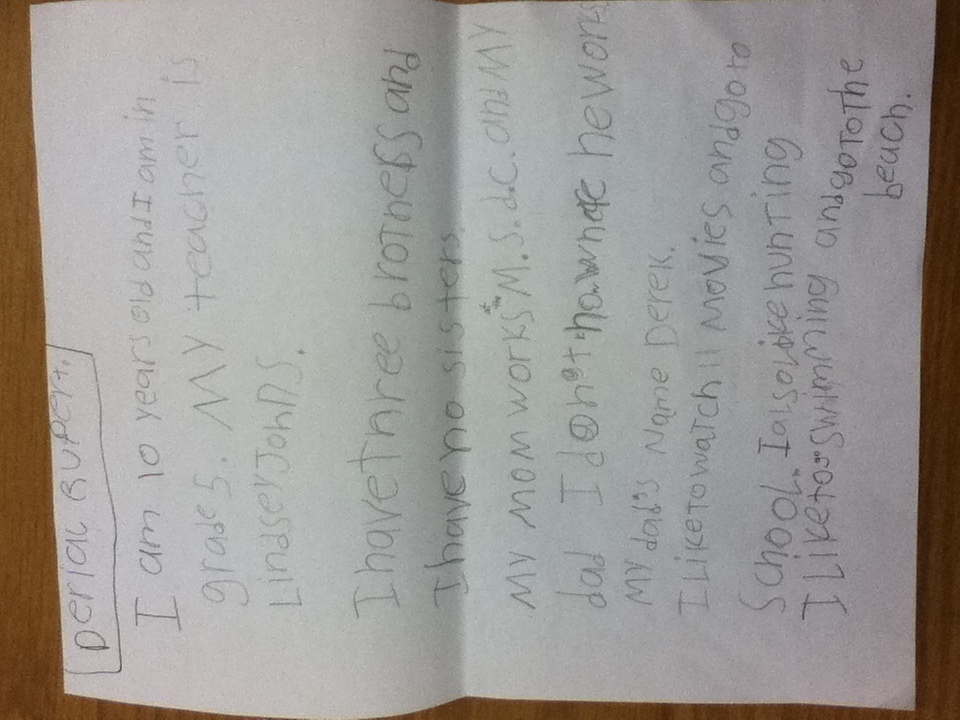 Derial Rupert.
I am 10 years old and I am in
grade 5. My teacher is
Lindser Johns.
I have Three broThers and
I have no sisters.
MY MOM works at the M.S.d.C. and MY
dad I do not no where he works
MY dad's Name Derek.
I Like To watch Movies and go to
School. I also Like hunTing
I Like To go swimming and go To The
beach.